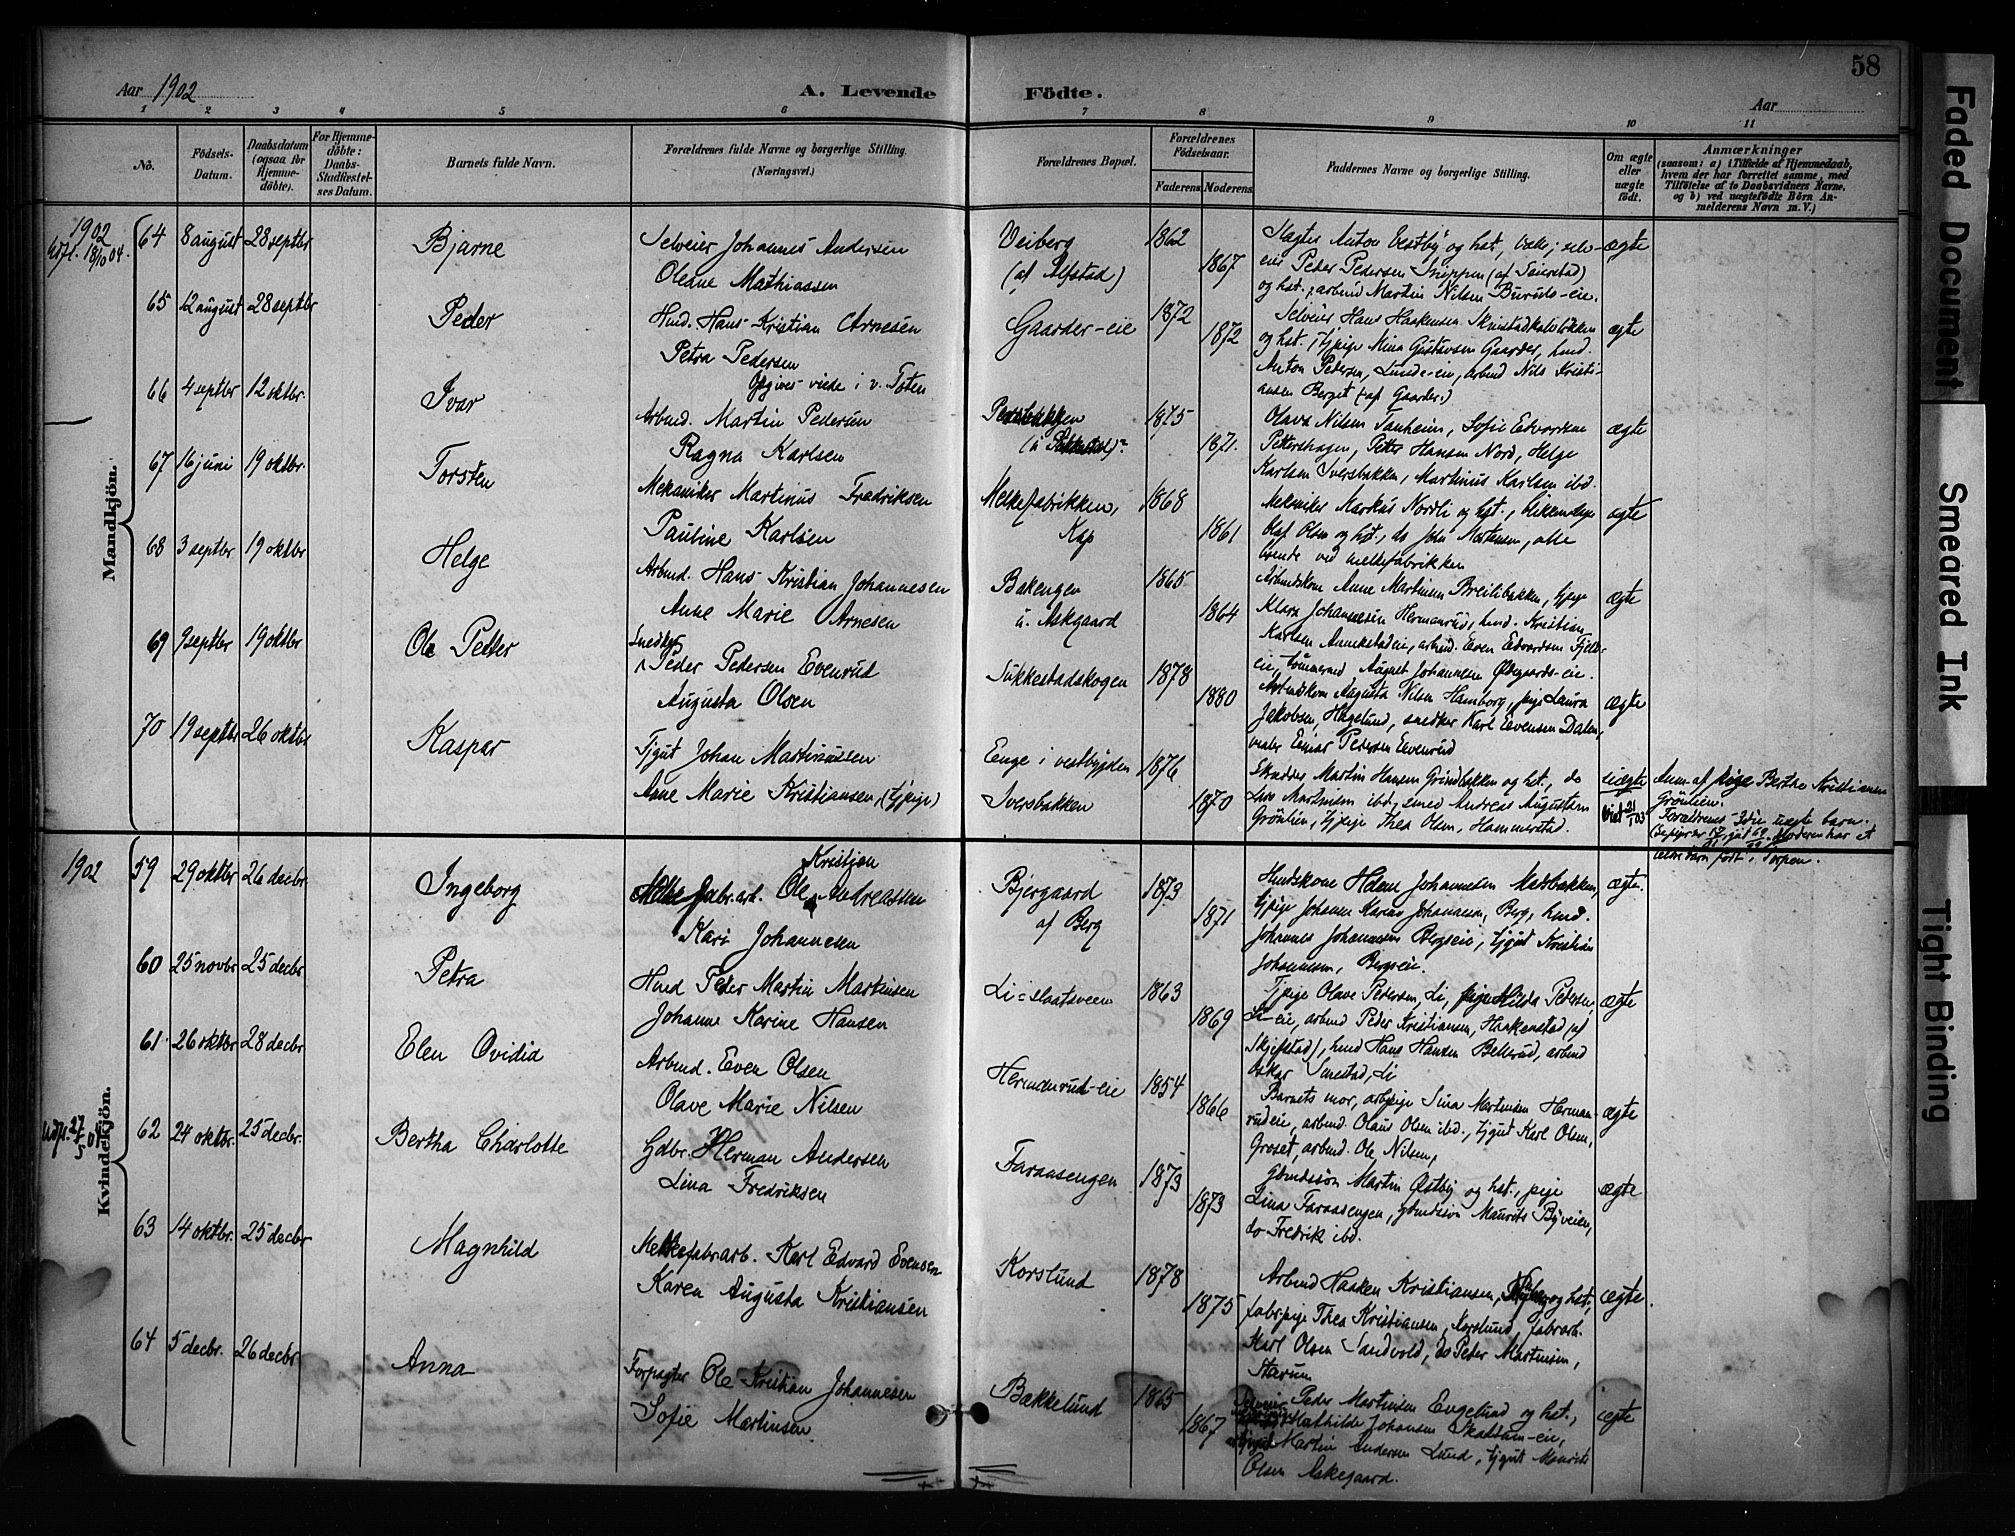 58
Aar 1902
A. Levende Födte.
Aar
1 2 3 4 5 6 7 8 9 10 11
No.
Födsels-Datum.
Daabsdatum (ogsaa for Hjemme-döbte).
For Hjemme-döbte: Daabs-Stadfæstel-ses Datum.
Barnets fulde Navn.
Forældrenes fulde Navne og borgerlige Stilling. (Næringsvei.)
Forældrenes Bopæl.
Forældrenes Födselsaar.
Faderens. Moderens.
Faddernes Navne og borgerlige Stilling.
Om ægte eller uægte födt.
Anmærkninger
(saasom: a) i Tilfælde af Hjemmedaab,
hvem der har forrettet samme, med
Tilföielse af to Daabsvidners Navne,
og b) ved uægtefödte Börn An-
melderens Navn m. V.)
Mandkjön.
1902
Udfl. 18/10 04.
64 8 august 28 septbr Bjarne
Selveier Johannes Andersen
Oleane Mathiassen
Veiberg
(af Alfstad)
1862
1867
Anton Vestby og hst.,
eier Peder Pedersen
og hst., arbmd Martin Nilsen Buruds-eie.
ægte
65 12 august 28 septbr Peder
Hmd. Hans Kristian Arnesen
Petra Pedersen
Opgives viede i v. Toten
Gaarder-eie
1872
1872
Selveier Hans Haakensen
og hst., tjpige Mina Gustavsen Gaarder, hmd.
Anton Pedersen, Lunde-eie, arbmd Nils Kristi-
ansen Berget (af Gaarder.)
ægte
66 4 septbr 12 oktbr. Ivar
Arbmd. Martin Pedersen
Ragna Karlsen
1875
1871.
Olava Nilsen Tanheim, Sofie Edvardsen
Pettershagen, Petter Hansen Nord, Helge
Karlsen Iversbakken, Martinus Karlsen ibd.
ægte
67 16 juni 19 oktbr. Torsten
Mekaniker Martinus Fredriksen
Pauline Karlsen
Melkefabrikken,
Kap
1868
1861
Mekaniker Markus Nordli og hst.,
Olaf Olsen og hst., do John Mortensen, alle
boende ved melkefabrikken
ægte
68 3 septbr 19 oktbr Helge
Arbmd. Hans Kristian Johannesen
Anne Marie Arnesen
Bakengen
u. Askgaard
1865
1864
Arbmdskone Anne Martinsen Breilibakken, tjpige
Klara Johannesen Hermanrud, hmd. Kristian
Karlsen, arbmd. Even Edvardsen
eie, tömmermd August Johannesen Ödegaards-eie.
ægte
69 9 septbr 19 oktbr Ole Petter
Snedker
Peder Pedersen Evenrud
Augusta Olsen
Sukkestadskogen
1878
1880
Arbmdskone Augusta Nilsen Hamborg, pige Laura
Jakobsen, Hagelund, snedker Karl Evensen Dalen,
maler Einar Pedersen Evenrud
ægte
70 19 septbr 26 oktbr Kaspar
Tjgut Johan Martinussen
Anne Marie Kristiansen, (tjpige)
Eenge i vestbygden
Iversbakken
1876
1870
Skrædder Martin Hansen Grindbakken og hst., do
Lars Martinsen ibd, smed Andreas Augustsen
Grönlien, tjpige Thea Olsen, Hammerstad.
uægte
Anm. af pige Berthe Kristiansen
Grönlien.
Forældrenes 2det uægte barn.
Moderen har et
barn født i Torpen.
Kvindekjön.
1902
59 29 oktbr 26 decbr. Ingeborg
Kristian
Melkefabr.arb. Ole Andreassen
Kari Johannesen
Bjergaard
af Berg
1873
1871
Hmdskone Helene Johannesen Madsbakken,
tjpige Johanne Karine Johannesen, Berg, hmd.
Johannes Johannesen Bergseie, tjgut Kristian
Johannesen, Bergseie.
ægte.
60 25 novbr. 25 decbr Petra
Hmd Peder Martin Martinsen
Johanne Karine Hansen
Li-slaatsveen
1863
1869
Tjpige Olave Pedersen, Li, pige Hilda Pedersen,
Li-eie, arbmd Peder Kristiansen, Haakenstad (af
Skjefstad), hmd Hans Hansen Bellerud, arbmd
Oskar Smestad, Li
ægte
61. 26 oktbr 28 decbr. Elen Ovidia
Arbmd. Even Olsen
Olave Marie Nilsen
Hermanrud-eie
1854
1866
Barnets mor, arbpige Sina Martinsen Herman-
rudeie, arbmd. Olaus Olsen ibd., tjgut Karl Olsen,
Groset, arbmd. Ole Nilsen,
ægte
62 24 oktbr. 25 decbr. Bertha Charlotte
Gdbr. Herman Andersen
Lina Fredriksen
Faraasengen
1873
1873
Gbmdssön Martin Østby og hst., pige
Lina Faraasengen, gbmdssön Maurits Byveien,
do Fredrik ibd.
ægte
63 14 oktbr. 25 decbr Magnhild
Melkefabrarb. Karl Edvard Evensen
Karen Augusta Kristiansen
Korslund
1878
1875
Arbmd Haaken Kristiansen, og hst.,
fabrpige Thea Kristiansen, Korslund, fabrarb.
Karl Olsen Sandvold, do Peter Martinsen,
Starum
ægte.
64 5 decbr. 26 decbr Anna
Forpagter Ole Kristian Johannesen
Sofie Martinsen
Bakkelund
1865
1867
Selveier Peder Martinsen Engelund og hst.,
Mathilde Johansen Skattum-eie,
Martin Andersen Lund, tjgut Maurits
Olsen Askegaard.
ægte
Faded Document
Smeared Ink
Tight Binding